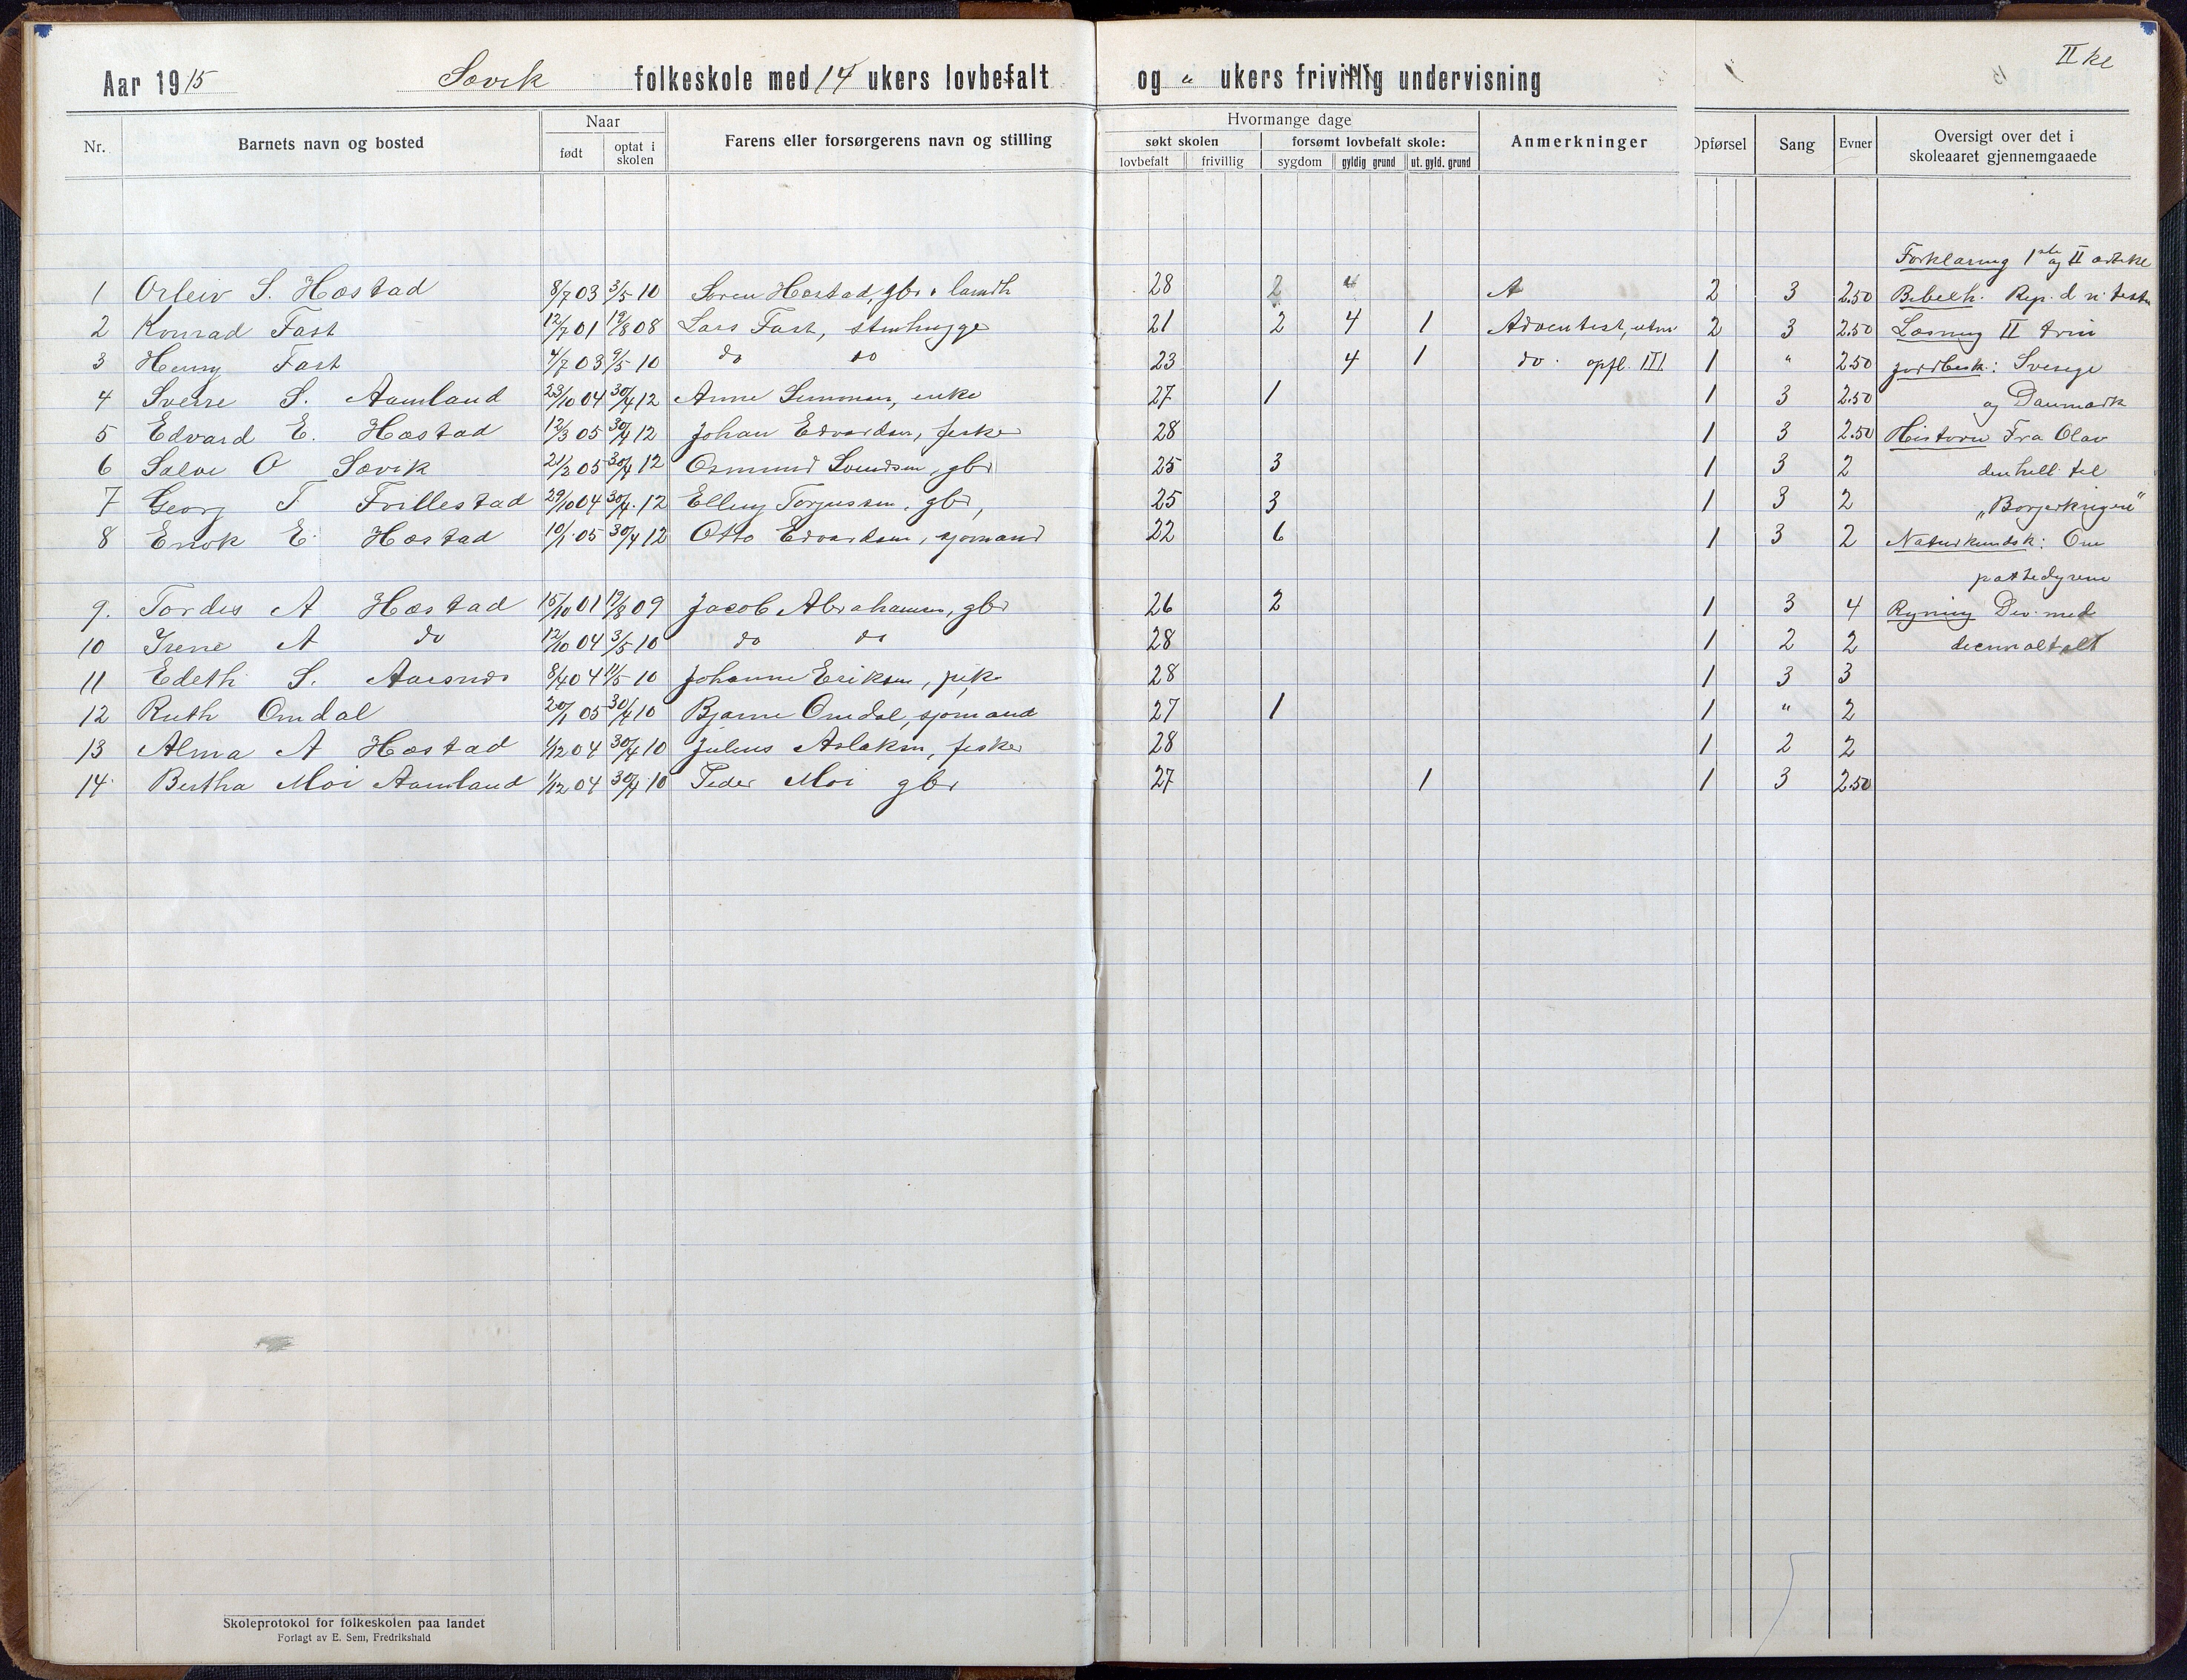 II kl
Aar 1915 Søvik folkeskole med 14 ukers lovbefalt og " ukers frivillig undervisning
Nr. Barnets navn og bosted Naar Farens eller forsørgerens navn og stilling Hvormange dage Anmerkninger Opførsel Sang Evner Oversigt over det i skoleaaret gjennemgaaede
født optat i skolen søkt skolen forsømt lovbefalt skole:
lovbefalt frivillig sygdom gyldig grund ut. gyld. grund
Forklaring 1ste og II artikel
1 Orleiv S. Hæstad 8/7 03 3/5 10 Søren Hæstad, gbr + landh 28 2 " A 2 3 2.50 Bibelh. Rep. d n. testm
2 Konrad Fast 12/7 01 19/8 08 Lars Fast, stenhugge 21 2 4 1 Adventist, utm 2 3 2.50 Læsning II trin
3 Henry Fast 4/7 03 9/5 10 do do 23 4 1 do. opfl. III 1 " 2.50 Jordbesk.: Sverige
4 Sverre S. Aamland 23/10 04 30/4 12 Anne Simonsen, enke 27 1 1 3 2.50 og Danmark
5 Edvard E. Hæstad 12/3 05 30/4 12 Johan Edvardsen, fisker 28 1 3 2.50 Historie Fra Olav
6 Salve O Søvik 21/3 05 30/4 12 Osmund Svendsen, gbr 25 3 1 3 2 den hell. til
7 Georg T Frillestad 29/10 04 30/4. 12 Elling Torjussen, gbr, 25 3 1 3 2 „Borgerkrigen"
8 Enok E. Hæstad 10/1. 05 30/4 12 Otto Edvardsen, sjømand 22 6 1 3 2 Naturkundsk: Om
pattedyrene
9. Tordis A Hæstad 15/10 01 19/8 09 Jacob Abrahamsen, gbr 26 2 1 3 4 Regning Div. med
10 Irene A do 12/10 04 3/5 10 do do 28 1 2 2 decimaltalt
11 Edith S. Aarsnes 8/4 04 11/5 10 Johanne Eriksen, pike 28 1 3 3
12 Ruth Omdal 20/1 05 30/4 10 Bjarne Omdal, sjømand 27 1 1 " 2
13 Alma A Hæstad 1/12 04 30/4 10 Julius Aslaksen, fisker 28 1 2 2
14. Bertha Moi Aamland 1/12 04 30/4 10 Peder Moi gbr 27 1 1 3 2.50
Skoleprotokol for folkeskolen paa landet
Forlagt av E. Sem, Fredrikshald